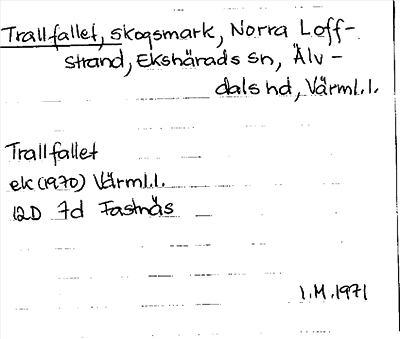 Trallfallet, skogsmark, Norra Loff-
strand, Ekshärads sn, Älv-
dals hd, Värml.l.
Trallfallet
ek (1970) Värml.l.
12D 7d Fastnäs
I.M. 1971